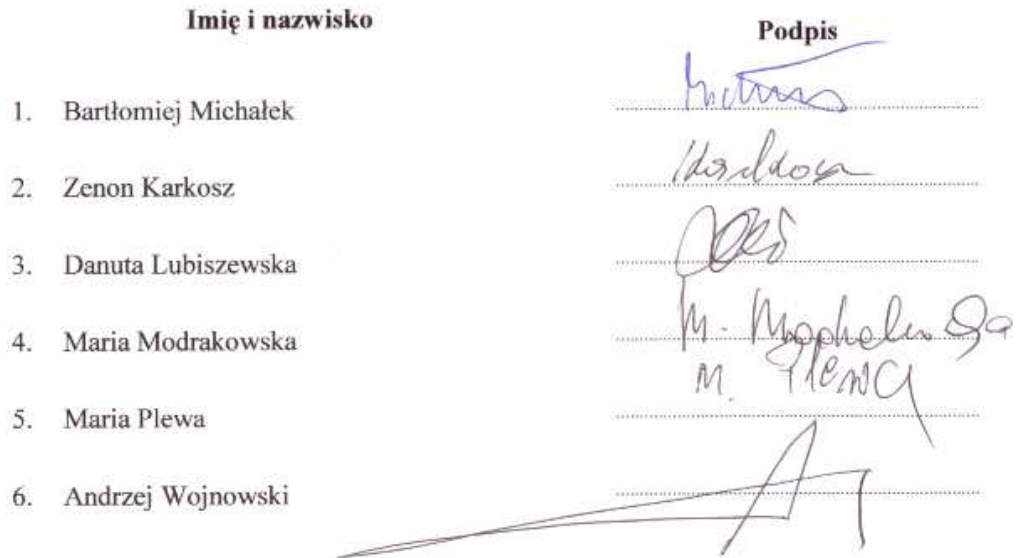 Imię i nazwisko Podpis
1. Bartłomiej Michałek
2. Zenon Karkosz
3. Danuta Lubiszewska
4. Maria Modrakowska M.
M. Plewa
5. Maria Plewa
6. Andrzej Wojnowski